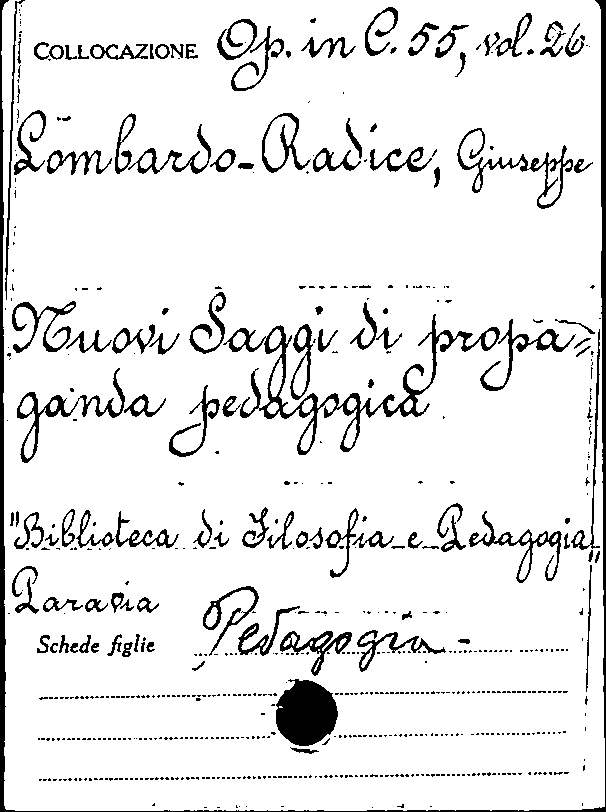 COLLOCAZIONE Op. in C. 55, vol. 26
Lombardo-Radice, Giuseppe
Nuovi Saggi di propa=
ganda pedagogica
"Biblioteca di Filosofia e Pedagogia"
Paravia
Schede figlie Pedagogia -